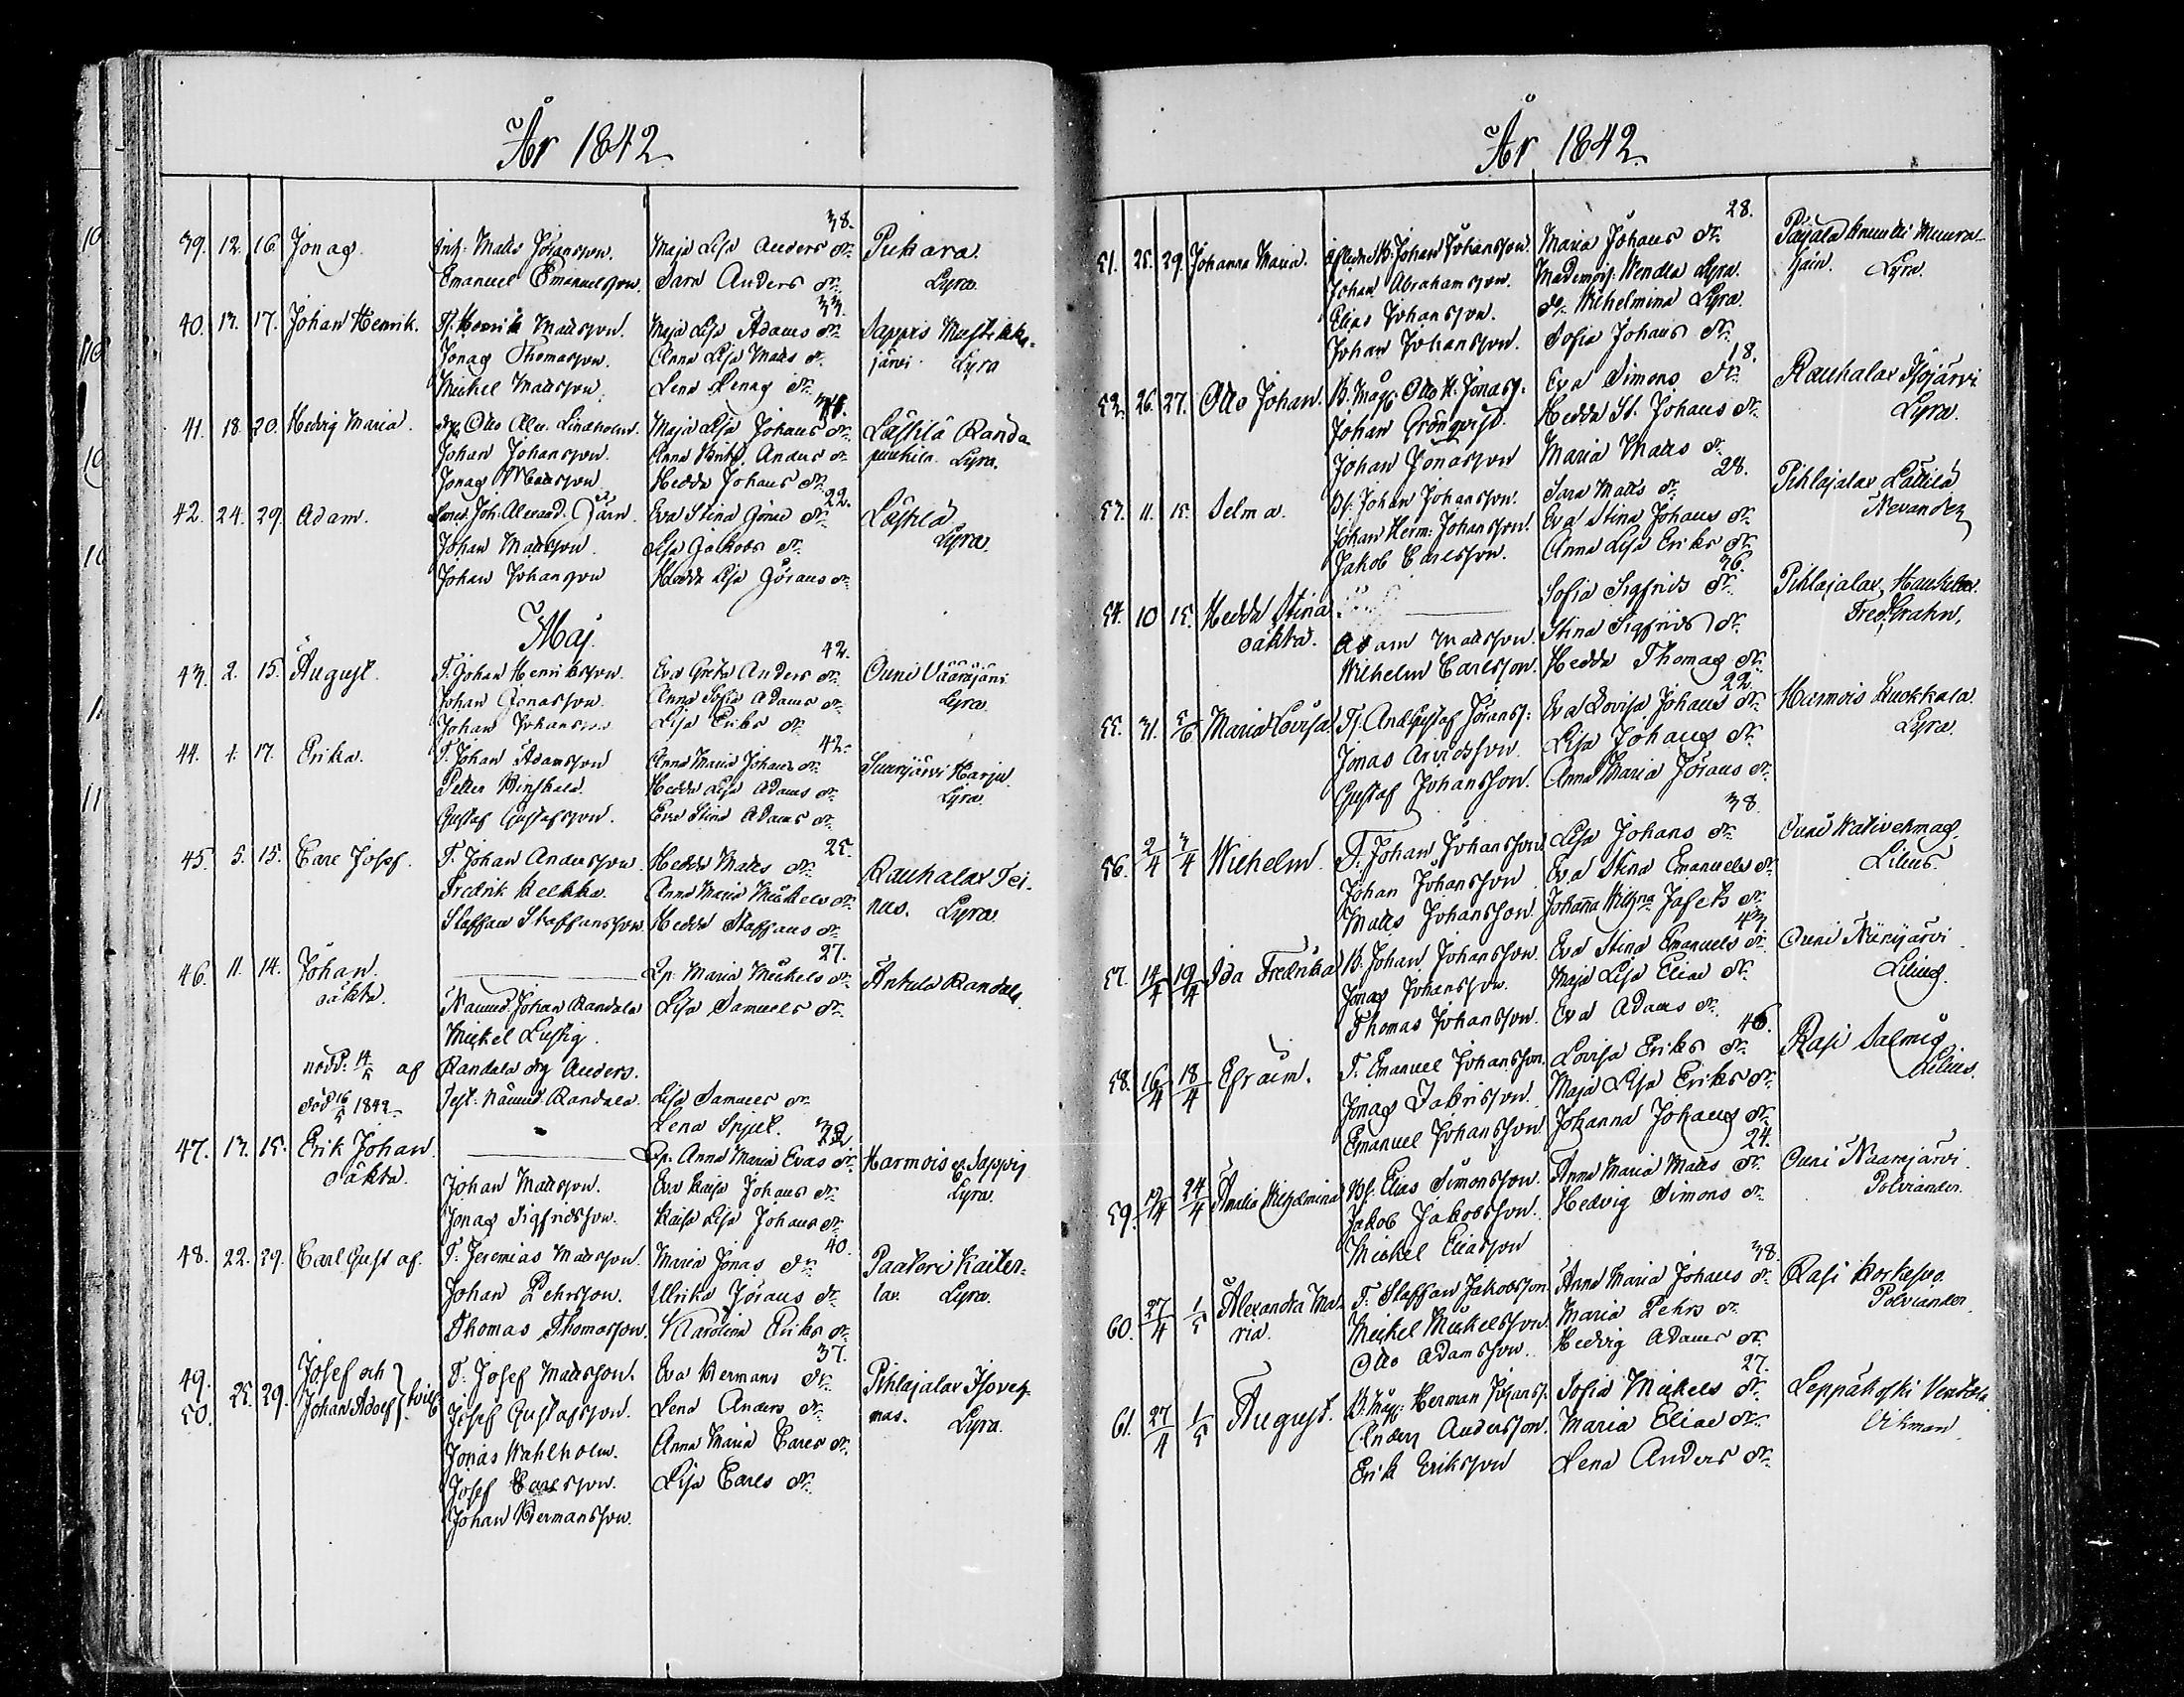 År 1842
38.
39. 12. 16. Jonas. Matts Johansson. Maja Lisa Anders dr. Pukara.
Emanuel Emanuelsson. Sara Anders dr. Lyra.
33.
40. 13. 17. Johan Henrik. Henrik Mattsson. Maja Lisa Adams dr. Sappis Mustikka-
Jonas Thomasson. Anna Lisa Matts dr. järvi. Lyra
Mickel Mattsson. Lena dr.
41. 18. 20. Hedvig Maria. Otto Alex. Lindholm. Maja Lisa Johans dr. Läskilä Randa
Johan Johansson. Anna Brita Anders dr. Lyra.
Jonas Mattsson. Hedda Johans dr.
22.
42. 24. 29. Adam. Joh. Alexand. Eva Stina dr. Läskilä
Johan Mattsson. Lisa Jakobs dr. Lyra.
Johan Johansson Hedda Lisa Görans dr.
Maj.
42.
43. 2. 15. August. T. Johan Henriksson. Eva Greta Anders dr. Ouni
Johan Jonasson. Anna Sofia Adams dr. Lyra.
Johan Johansson Lisa Eriks dr.
42.
44. 1. 17. Erika. T. Johan Adamsson Anna Maria Johans dr. Suurijärvi Harju.
Petter Hedda Lisa Adams dr. Lyra.
Gustaf Gustafsson. Eva Stina Adams dr.
25.
45. 5. 15. Carl Josef. T. Johan Andersson. Hedda Matts dr. Rauhalax Tei-
Fredrik Anna Maria Mickels dr. nus. Lyra.
Staffan Staffansson. Hedda Staffans dr.
27.
46. 11. 14. Johan. Lp. Maria Mickels dr. Randala
oäkta. Nämnd. Johan Randala Lisa Samuels dr.
Mickel Lustig.
nödd. 14/5 af Randala drg Anders.
död 16/5 1842. Test. Nämnd. Randala. Lisa Samuels dr.
Lena
47. 13. 15. Erik Johan Lp. Anna Maria Evas dr. Harmois o. Sappis
oäkta. Johan Mattsson. Eva Kaisa Johans dr. Lyra.
Jonas Sigfridsson. Kaisa Lisa Johans dr.
40.
48. 22. 29. Carl Gustaf. T. Jeremias Mattsson. Maria Jonas dr. Paateri Kaiter-
Johan Pehrsson. Ulrika Jörans dr. lax. Lyra.
Thomas Thomasson. Karolina Eriks dr.
37.
49. Josef och T. Josef Mattsson. Eva Hermans dr. Pihlajalax
50. 25. 29. Johan Adolf Josef Gustafsson. Lena Anders dr. mas. Lyra.
Jonas Wahlholm. Anna Maria Carls dr.
Josef Carlsson. Lisa Carls dr.
Johan Hermansson.
År 1842
28.
51. 25. 29. Johanna Maria. Johan Johansson. Maria Johans dr. Pajala
Johan Abrahamsson. Mademois. Wendla Lyra. Lyra.
Elias Johansson. do. Wilhelmina Lyra.
Johan Johansson. Sofia Johans dr.
18.
52. 26. 27. Otto Johan. B. Måg. Otto H. Jonass. Eva Simons dr. Rauhalax Isojärvi
Johan Grönqvist. Hedda St. Johans dr. Lyra.
Johan Jonasson Maria Matts dr.
28.
53. 11. 15. Selma. Bs. Johan Johansson. Sara Matts dr. Pihlajalax Lattila
Johan Herm. Johansson. Eva Stina Johans dr. Nevander
Jakob Carlsson. Anna Lisa Eriks dr.
36.
54. 10 15. Hedda Stina Sofia Sigfrids dr. Pihlajalax,
oäkta. Adam Mattsson. Stina Sigfrids dr. Fred. Grahn.
Wilhelm Carlsson. Hedda Thomas dr.
22.
55. 31. 5/6 Maria Lovisa. And. Gustaf Jöranss. Eva Lovisa Johans dr. Harmois Kuokkala.
Jonas Arvidsson. Lisa Johans dr. Lyra.
Gustaf Johansson. Anna Maria Jörans dr.
38.
56. 2/4 3/4 Wilhelm. T. Johan Johansson Lisa Johans dr. Ouni
Johan Johansson Eva Stina Emanuels dr. Lilius.
Matts Johansson. Johanna Jafets dr.
43.
57. 14/4 19/4 Ida Fredrika B. Johan Johansson. Eva Stina Emanuels dr. Ouni Niinijärvi
Jonas Johansson. Maja Lisa Eliae dr. Lilius.
Thomas Johansson. Eva Adams dr.
46.
58. 16/4 18/4 Efraim. T. Emanuel Johansson. Lovisa Eriks dr. Rasi Salmis
Jonas Maja Lisa Eriks dr. Lilius.
Emanuel Johansson Johanna Johans dr.
24.
59. 24/4 Amalia Wilhelmina Bs. Elias Simonsson. Anna Maria Matts dr. Ouni Naarajärvi.
Jakob Jakobsson. Hedvig Simons dr. Polviander.
Mickel Eliasson
38.
60. 27/4 1/5 Alexandra Ma- T. Staffan Jakobsson. Anna Maria Johans dr. Rasi
ria. Mickel Mickelsson Maria Pehrs dr. Polviander.
Otto Adamsson. Hedvig Adams dr.
27.
61. 27/4 1/5 August. B. Måg. Herman Johanss. Sofia Mickels dr. Leppäkoski
Anders Andersson. Maria Eliae dr. Vikman.
Erik Eriksson Lena Anders dr.